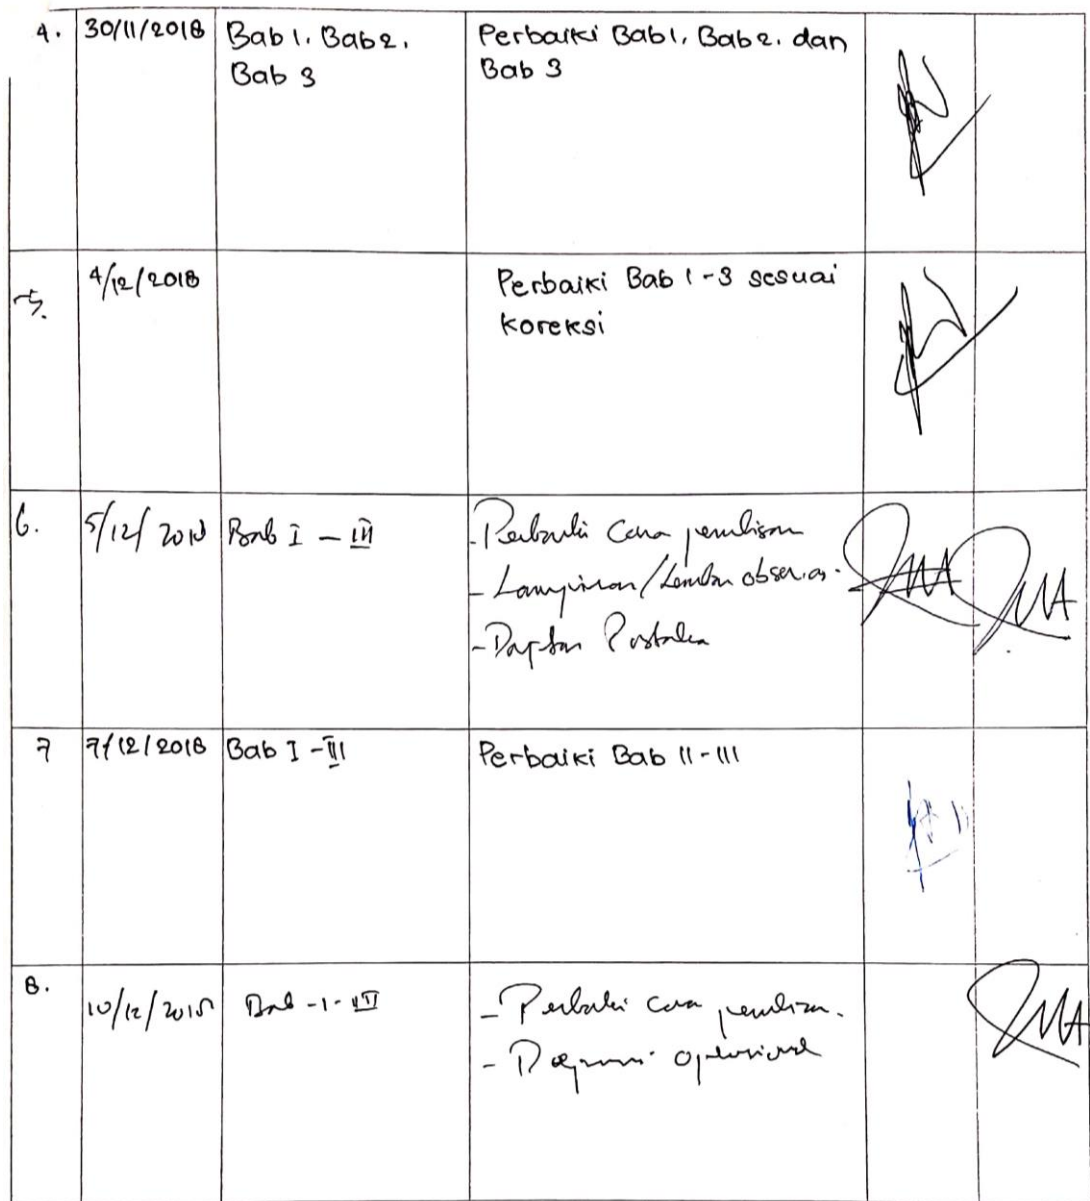 4. 30/11/2018 Bab 1. Bab 2. Perbaiki Bab 1. Bab 2. dan
Bab 3 Bab 3
5. 4/12/2018 Perbaiki Bab 1-3 sesuai
koreksi
6. 5/12/2018 Bab I - III - Perbaiki Cara penulisan
- Lampiran/Lembar observasi.
- Daftar Pustaka
7 7/12/2018 Bab I - III Perbaiki Bab II-III
8. 10/12/2018 Bab - I - III - Perbaiki cara penulisan.
- Defenisi operasional